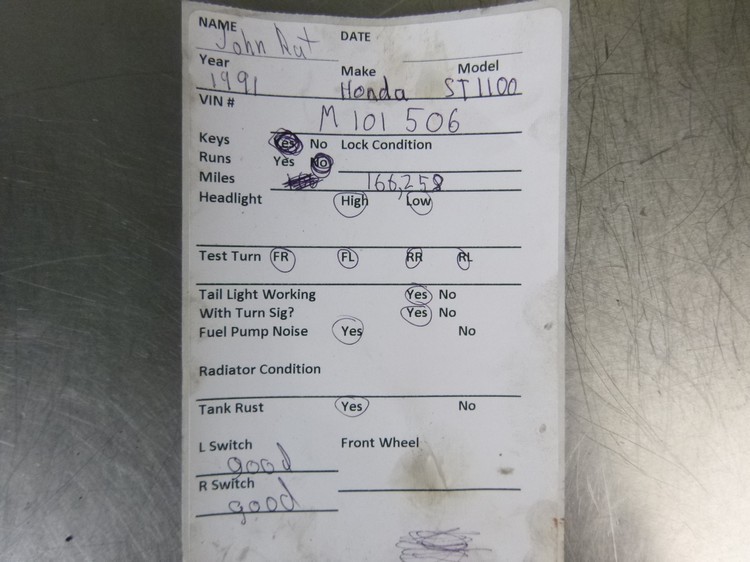 NAME John Rat DATE
Year 1991 Make Honda Model ST1100
VIN # M 101 506
Keys Yes No Lock Condition
Runs Yes No
Miles 166,258
Headlight High Low
Test Turn FR FL RR RL
Tail Light Working Yes No
With Turn Sig? Yes No
Fuel Pump Noise Yes No
Radiator Condition
Tank Rust Yes No
L Switch good Front Wheel
R Switch good